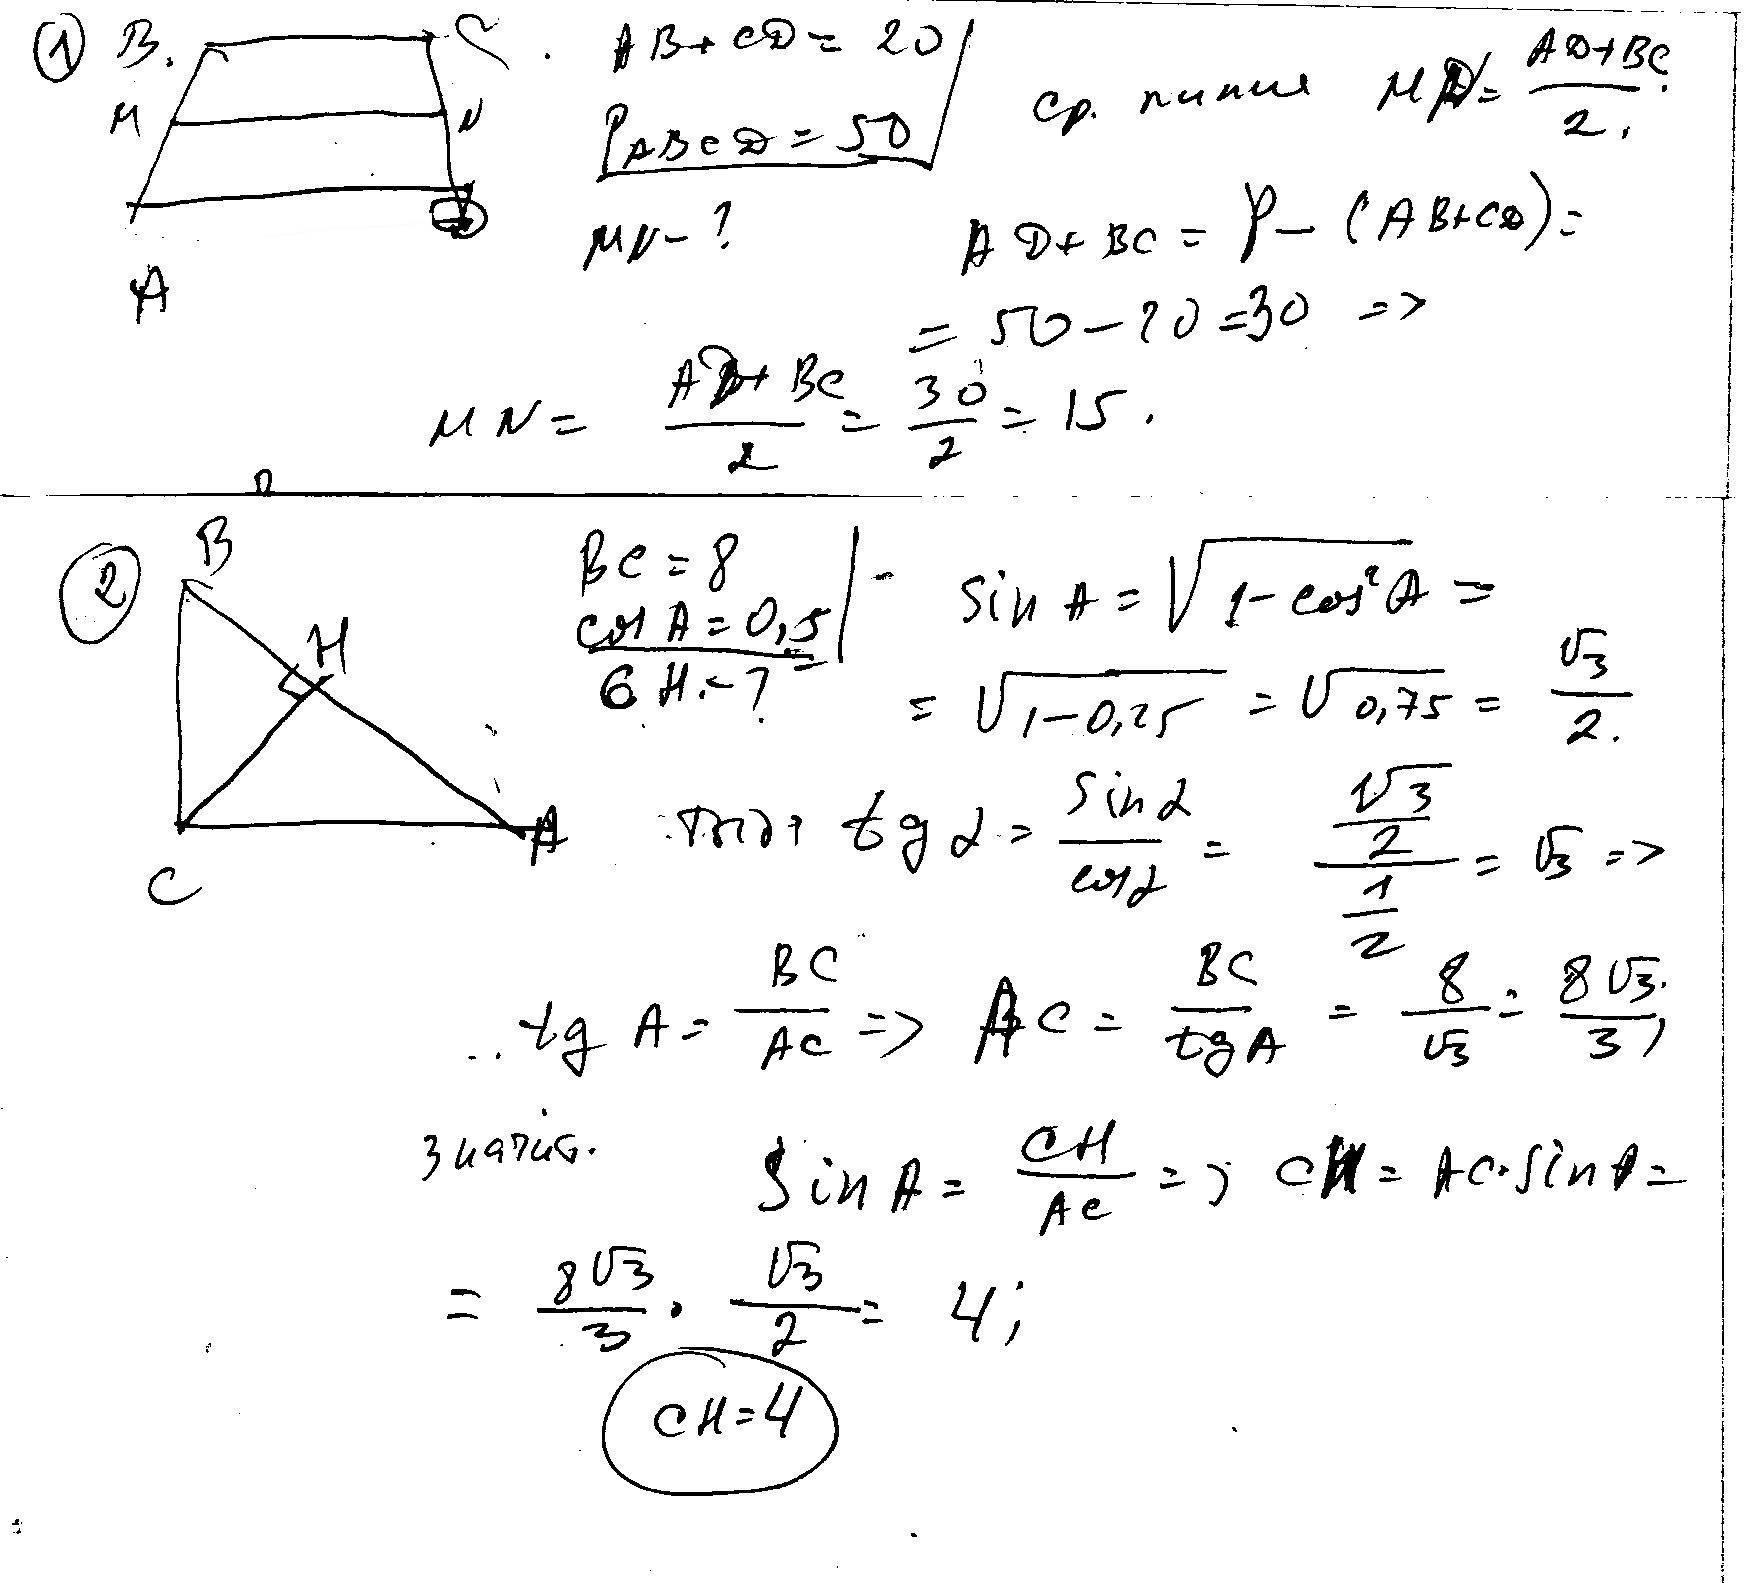 1
B. C
M N
A D
AB+CD=20
P ABCD=50
MN-?
ср. линия MN= AD+BC / 2.
AD+BC=P-(AB+CD)=
=50-20=30 =>
MN= AD+BC / 2 = 30 / 2 = 15.
2
B
H
C A
BC=8
cos A=0,5
CH.-?
sin A=√1-cos²A =
=√1-0,25 =√0,75 = √3 / 2.
tg α= sin α / cos α = √3/2 / 1/2 = √3 =>
tg A= BC / AC => AC= BC / tg A = 8 / √3 = 8√3 / 3;
значит.
sin A= CH / AC => CH=AC·sin A=
= 8√3 / 3 · √3 / 2 = 4;
CH=4